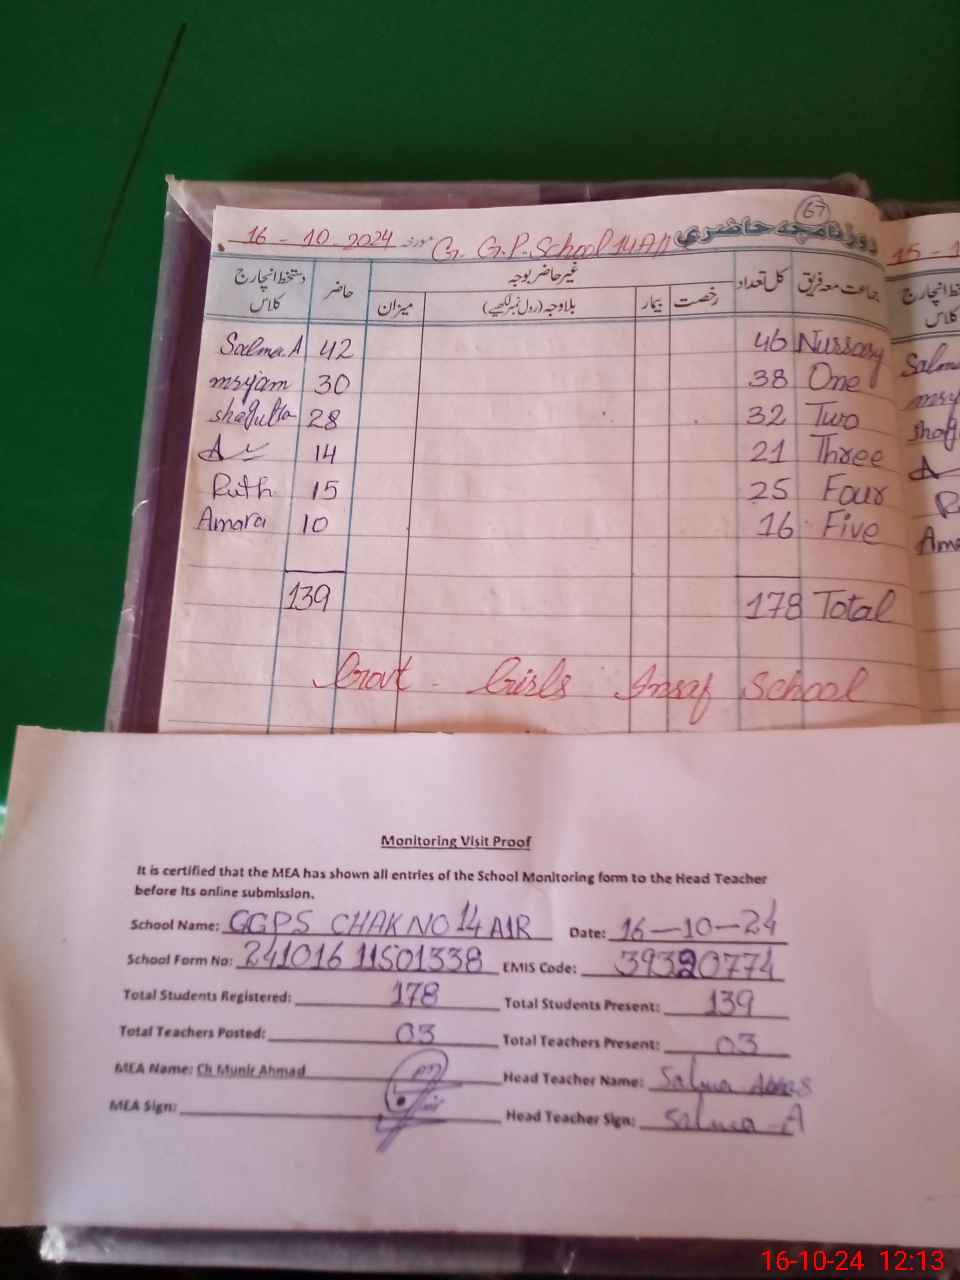 67
16 - 10 - 2024 مورخہ G. G.P. School 14A/1 روزنامچہ حاضری
15 - 1
جماعت معہ فریق کل تعداد غیر حاضر بوجہ حاضر دستخط انچارج کلاس
رخصت بیمار بلاوجہ (رول نمبر لکھیے) میزان
Salma A 42 46 Nursary Salm
msyam 30 38 One msy
shagufta 28 32 Two shag
14 21 Three
Ruth 15 25 Four R
Amara 10 16 Five Ama
139 178 Total
Govt Girls Insaf School
Monitoring Visit Proof
It is certified that the MEA has shown all entries of the School Monitoring form to the Head Teacher
before its online submission.
School Name: GGPS CHAK NO 14 A1R Date: 16-10-24
School Form No: 241016 11501338 EMIS Code: 39320774
Total Students Registered: 178 Total Students Present: 139
Total Teachers Posted: 03 Total Teachers Present: 03
MEA Name: Ch Munir Ahmad Head Teacher Name: Salma Abbas
MEA Sign: Head Teacher Sign: Salma A
16-10-24 12:13